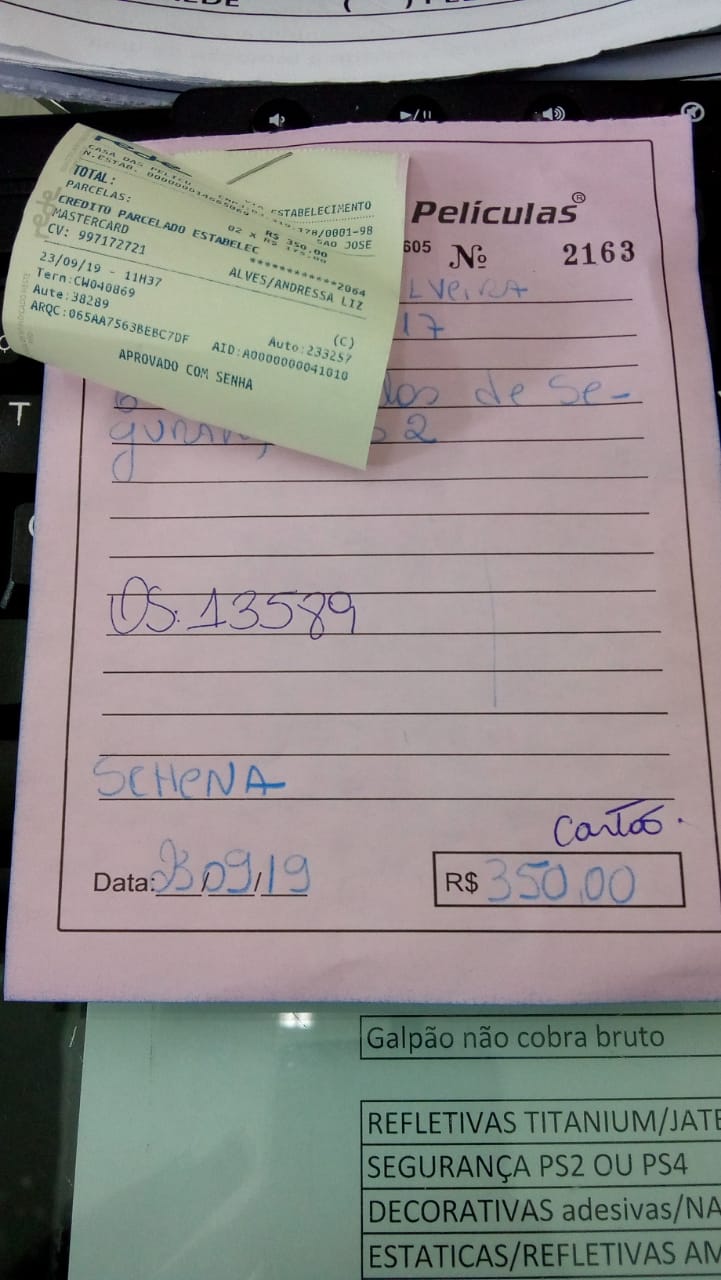 rede
CASA DAS PELICU
VIA ESTABELECIMENTO
TOTAL: R$ 350.00
PARCELAS: 02 x R$ 175.00
SAO JOSE
CREDITO PARCELADO ESTABELEC
MASTERCARD ************2064
CV: 997172721 ALVES/ANDRESSA LIZ
23/09/19 - 11H37
Term:CW040869 (C)
Aute:38289 Auto:233257
ARQC:065AA7563BEBC7DF AID:A0000000041010
APROVADO COM SENHA
Películas®
605 Nº 2163
LVeiRA
17
dos de Se-
2
OS. 13589
SCHENA
Cartão.
Data: 23/09/19 R$ 350,00
Galpão não cobra bruto
REFLETIVAS TITANIUM/JATE
SEGURANÇA PS2 OU PS4
DECORATIVAS adesivas/NA
ESTATICAS/REFLETIVAS AM